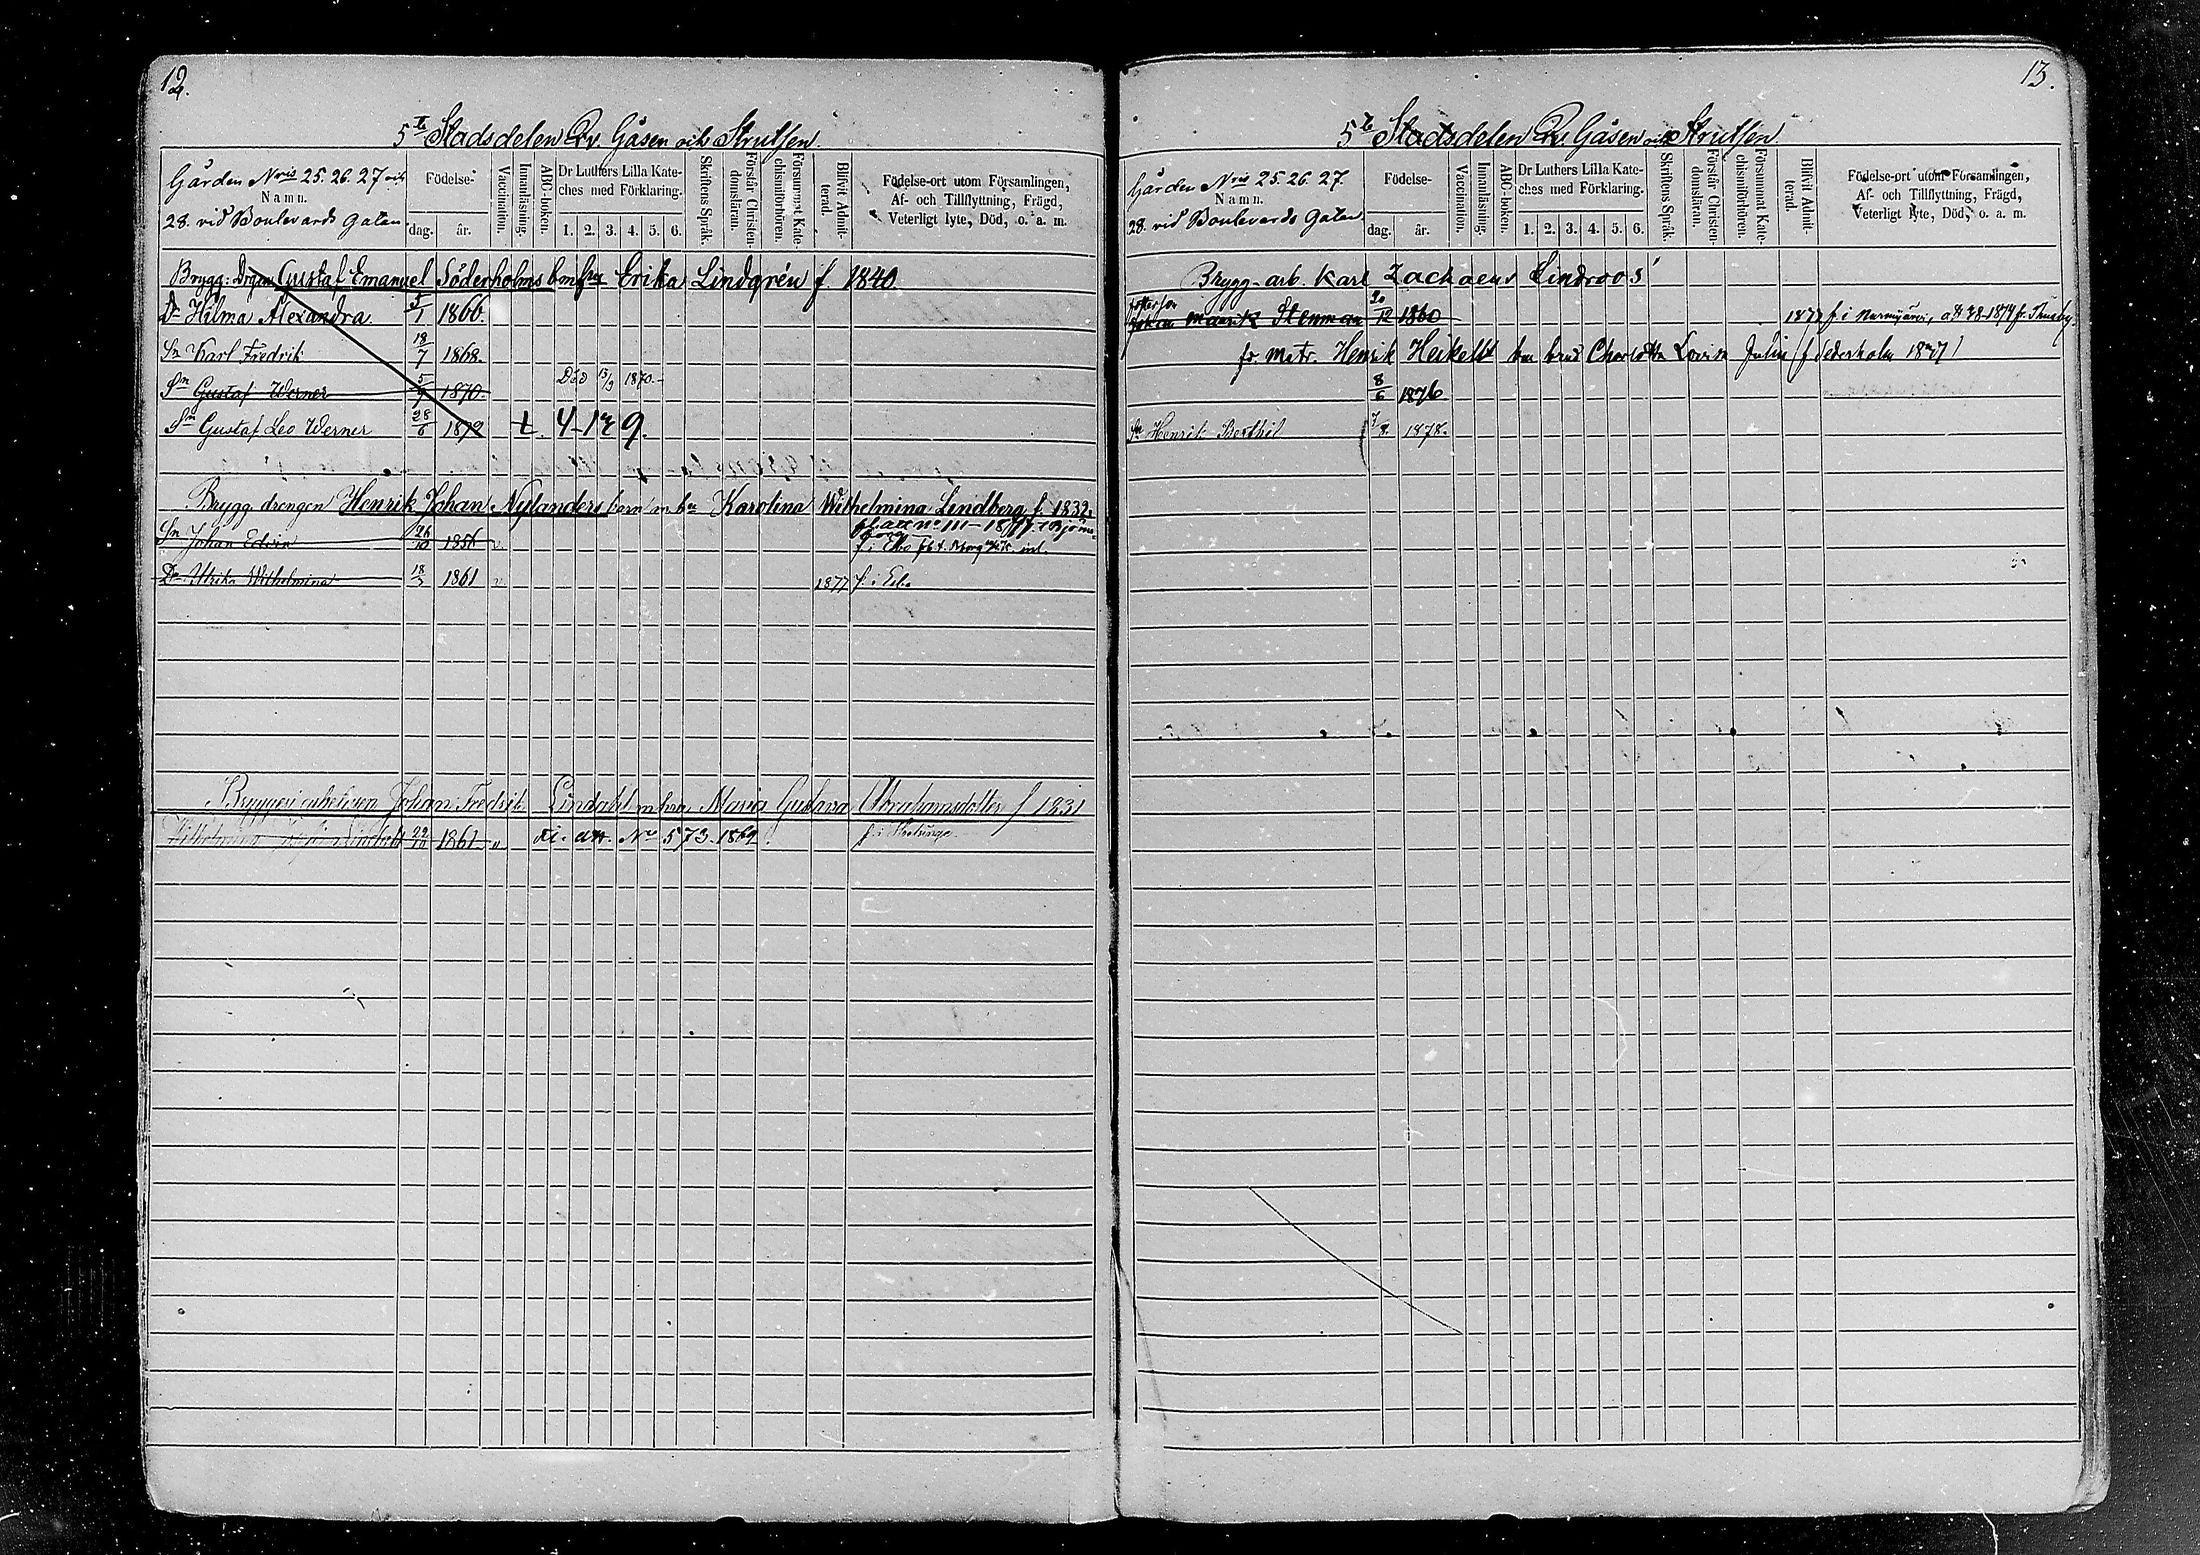 12.
5te Stadsdelen Qv. Gåsen och Strutsen.
Gården Nris 25. 26. 27 och
Namn.
28. vid Boulevards Gatan
Födelse-
dag. år.
Vaccination.
Innanläsning.
ABC-boken.
Dr Luthers Lilla Kate-
ches med Förklaring.
1. 2. 3. 4. 5. 6.
Skriftens Språk.
Förstår Christen-
domsläran.
Försummat Kate-
chismiförhören.
Blifvit Admit-
terad.
Födelse-ort utom Församlingen,
Af- och Tillflyttning, Frägd,
Veterligt lyte, Död, o. a. m.
Brygg: Drgen Gustaf Emanuel Söderholms b m hu Erika Lindgrén f. 1840
Dr Hilma Alexandra 5/1 1866.
Sn Karl Fredrik 18/7 1868.
Sn Gustaf Werner 5/9 1870. Död 13/9 1870.
Sn Gustaf Leo Werner 28/6 1872 t. 4-129.
Brygg drengen Henrik Johan Nylanders barn m hu Karolina Wilhelmina Lindberg f. 1832.
Sn Johan Edvin 26/10 1856 v. f. i Esbo
Dr Ulrika Wilhelmina 18/3 1861 v. 1877 f. i Esbo
Bryggeri arbetaren Johan Fredrik Lindahl m hu Maria Gustava Abrahamsdotter f 1831
Wilhelmina 22/10 1861 v fl. att. No 573. 1869.
13.
5te Stadsdelen Qv. Gåsen och Strutsen.
Gården Nris 25. 26. 27.
Namn.
28. vid Boulevards Gatan
Födelse-
dag. år.
Vaccination.
Innanläsning.
ABC-boken.
Dr Luthers Lilla Kate-
ches med Förklaring.
1. 2. 3. 4. 5. 6.
Skriftens Språk.
Förstår Christen-
domsläran.
Försummat Kate-
chismiförhören.
Blifvit Admit-
terad.
Födelse-ort utom Församlingen,
Af- och Tillflyttning, Frägd,
Veterligt lyte, Död, o. a. m.
Brygg-arb. Karl Zachaeus Lindroos'
Stenman 20/12 1860 1877 f. i Nurmijärvi,
fr. matr. Henrik Heikell hu Charlotta Lovisa Julin
8/6 1876
Sn Henrik Berthil 7/8. 1878.